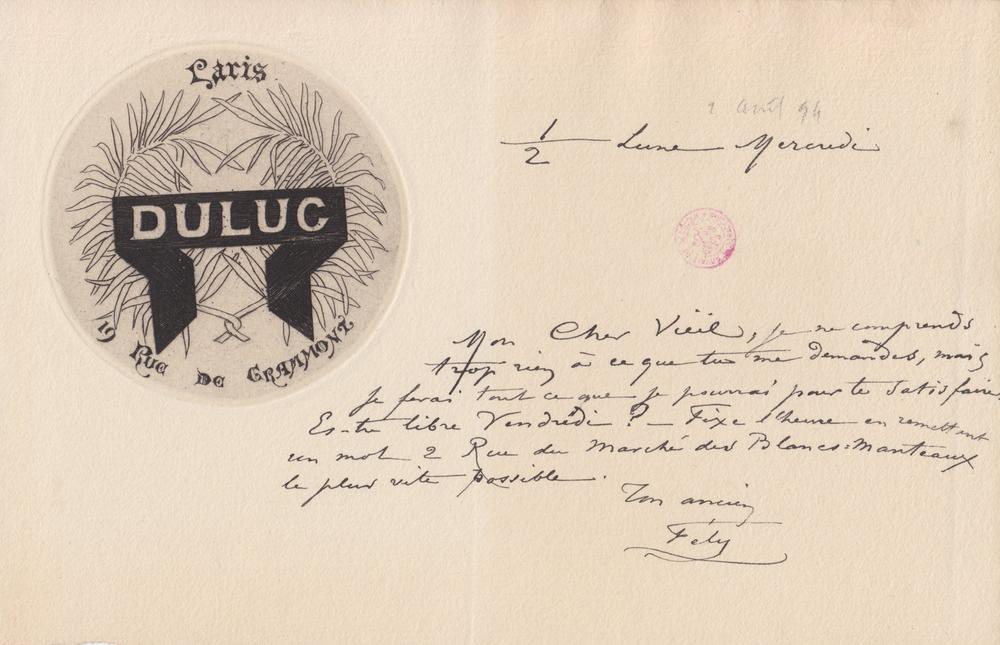 Paris
DULUC
19 RUE DE GRAMMONT
2 Avril 94
1/2 Lune Mercredi
Mon Cher Vieïl, je ne comprends
trop rien à ce que tu me demandes, mais
je ferai tout ce que je pourrai pour te satisfaire.
Es-tu libre Vendredi ? — Fixe l'heure en remettant
un mot 2 Rue du Marché des Blancs=Manteaux
le plus vite possible.
Ton ancien
Fély